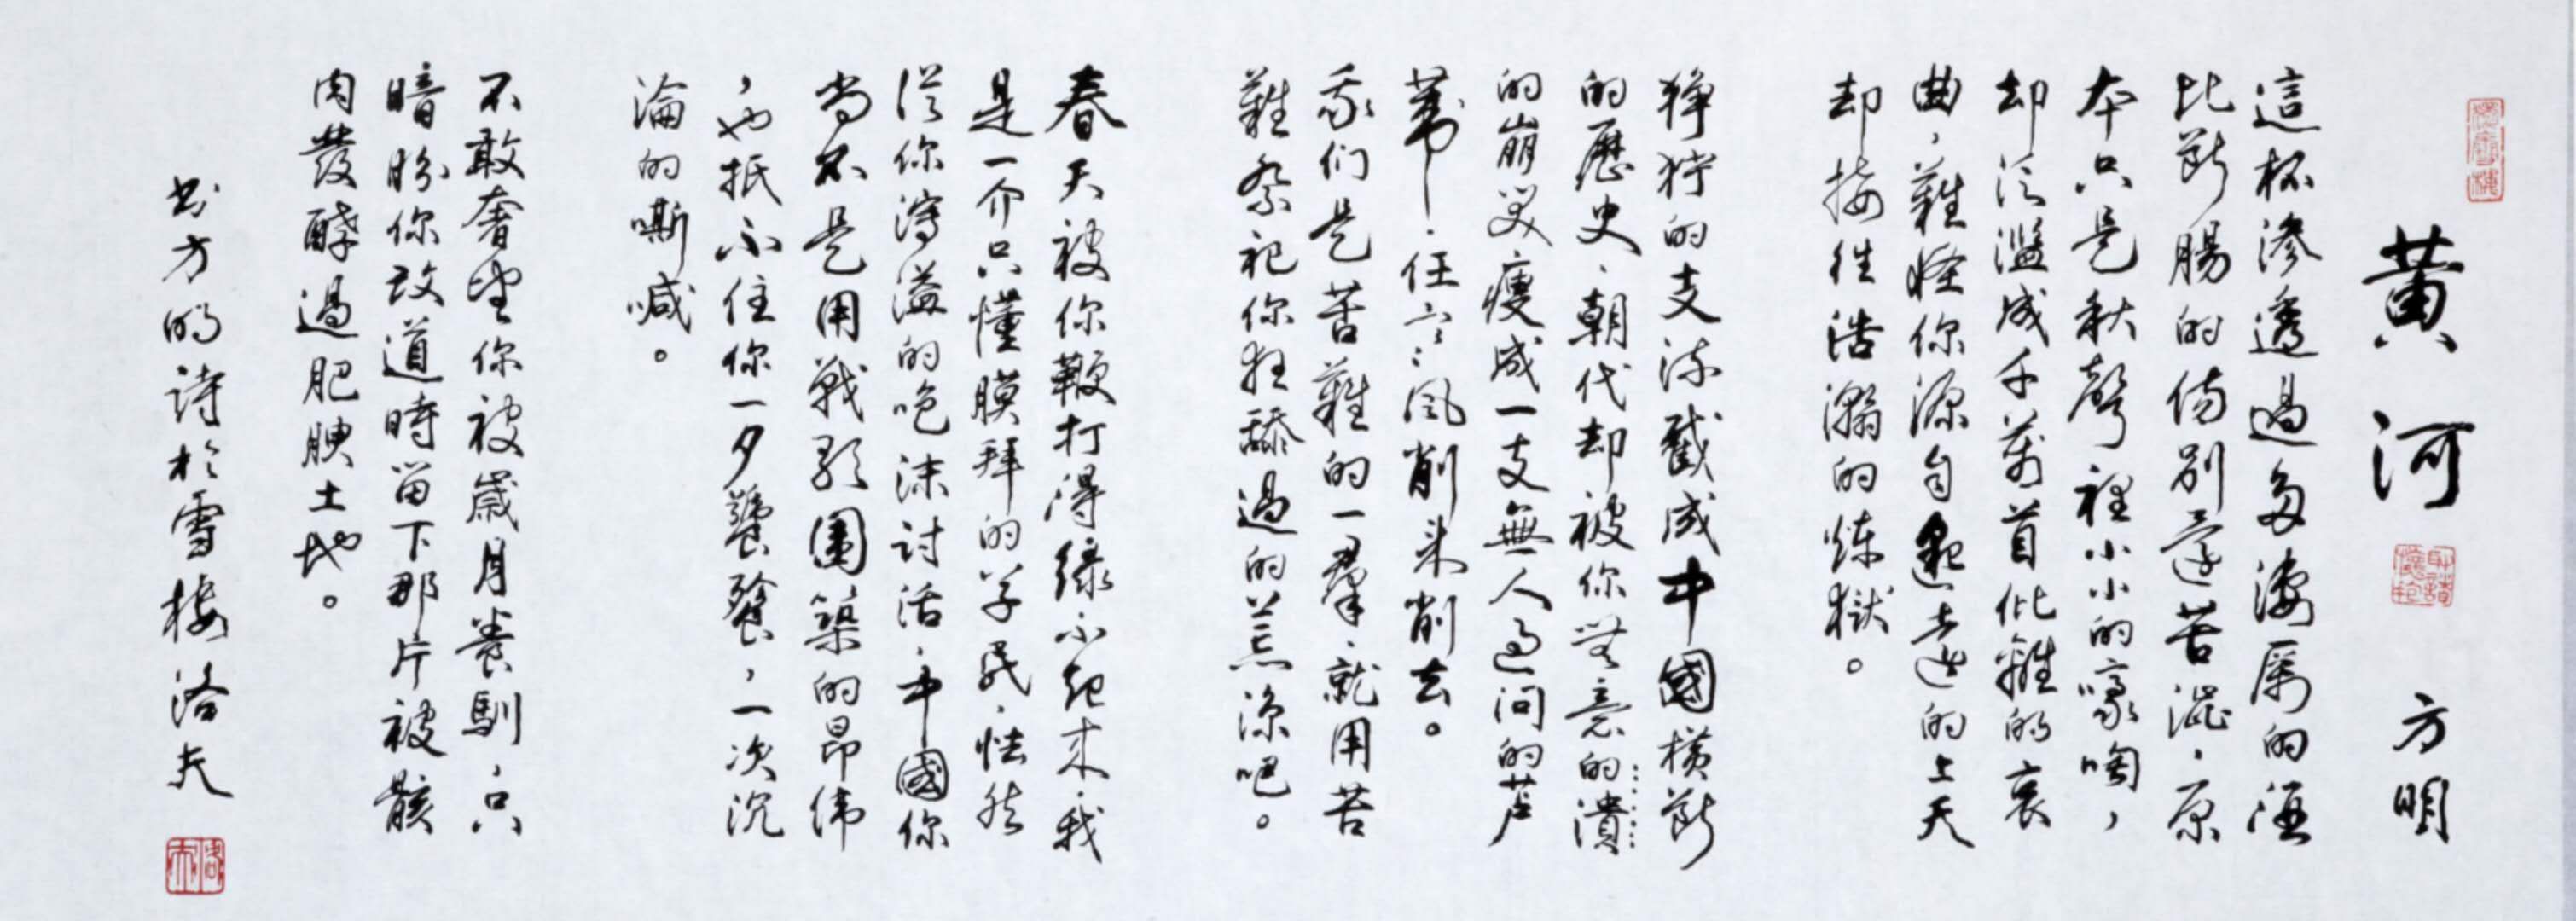 黃河 方明
這杯滲透過多淒厲的酒
比斷腸的傷別還苦澀，原
本只是秋聲裡小小的嚎啕，
却泛濫成千萬首仳離的哀
曲，難怪你源自邈遠的上天
却接往浩瀚的煉獄。
猙獰的支流截成中國橫斷
的歷史，朝代却被你無意的潰
的崩哭瘦成一支無人過問的芦
葦，任寒風削來削去。
我们是苦難的一羣，就用苦
難祭祀你狂舔過的荒涼吧。
春天被你鞭打得綠不起來，我
是一介只懂膜拜的草民，怯於
從你濤溢的泡沫討活，中國你
尚不是用戰骸圍築的昂偉
，也抵不住你一夕饕餮，一次沉
淪的嘶喊。
不敢奢望你被歲月豢馴，只
暗盼你改道時留下那片被骸
肉發酵過肥腴土地。
书方明詩於雪樓 洛夫
洛夫